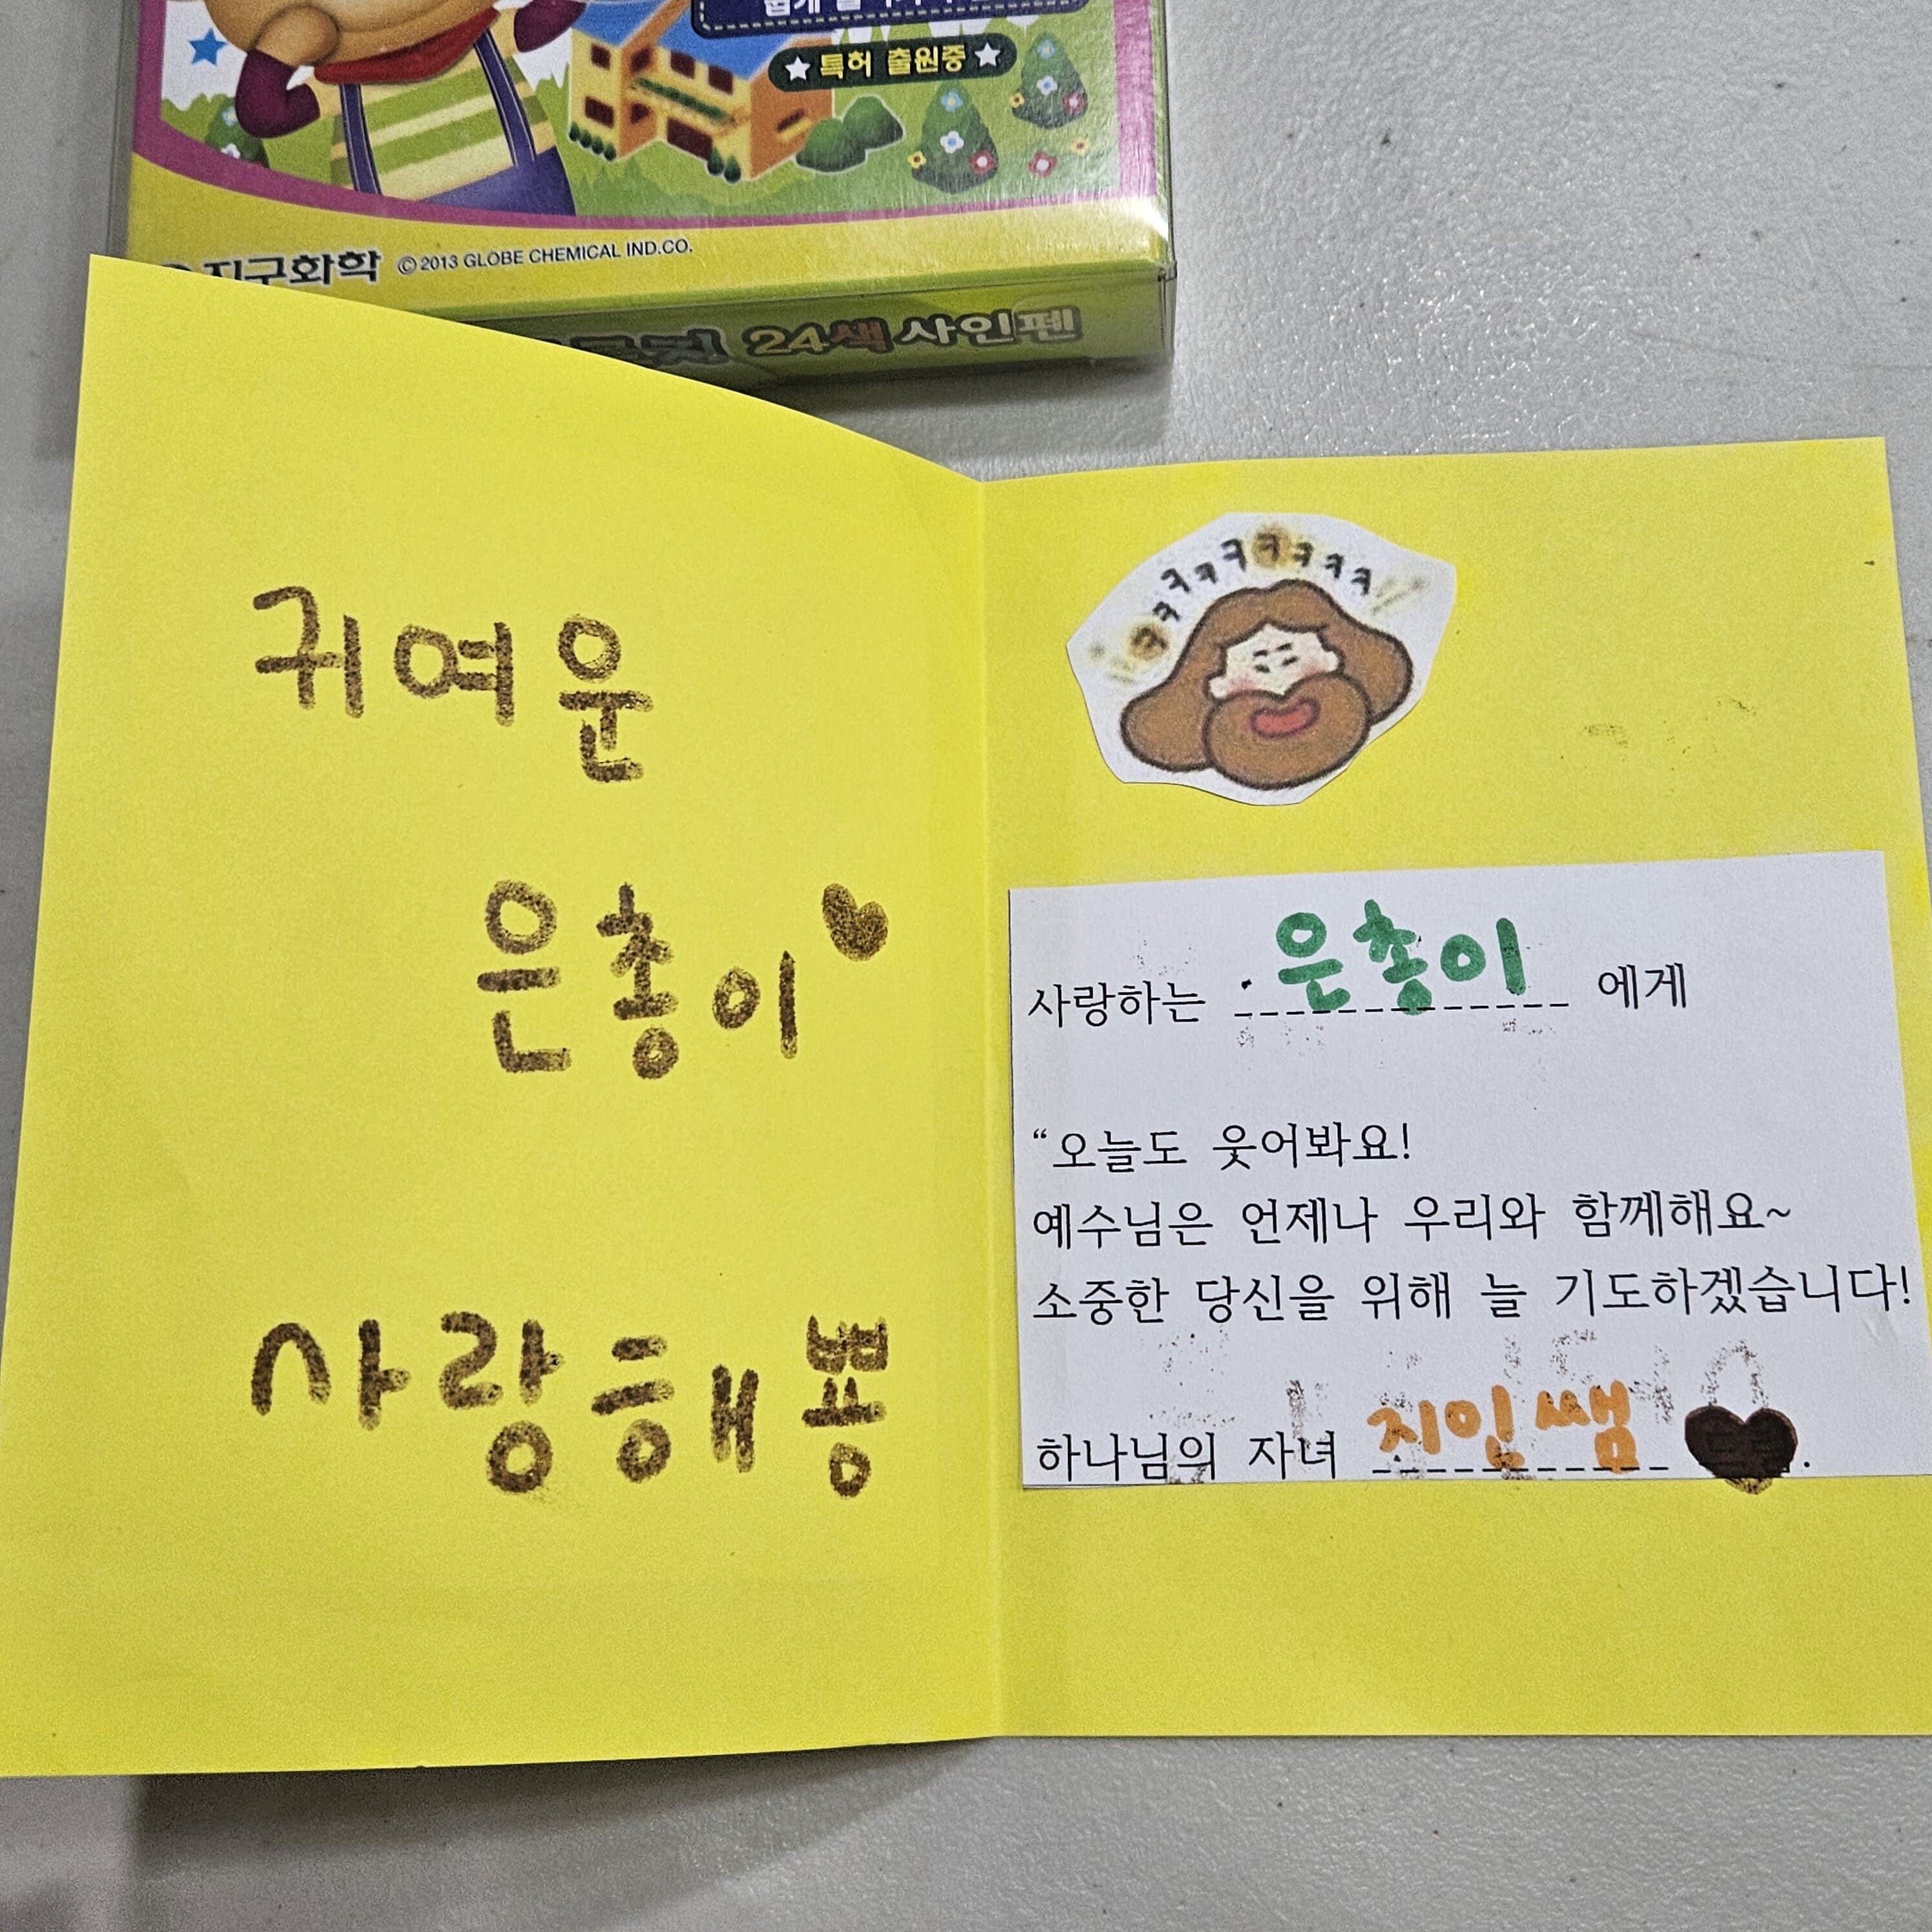 ★ 특허 출원중 ★
지구화학 © 2013 GLOBE CHEMICAL IND.CO.
24색 사인펜
귀여운
은총이
사랑해뿅
ㅋㅋㅋㅋㅋㅋㅋㅋㅋ
사랑하는 은총이 에게
“오늘도 웃어봐요!
예수님은 언제나 우리와 함께해요~
소중한 당신을 위해 늘 기도하겠습니다!
하나님의 자녀 지인쌤